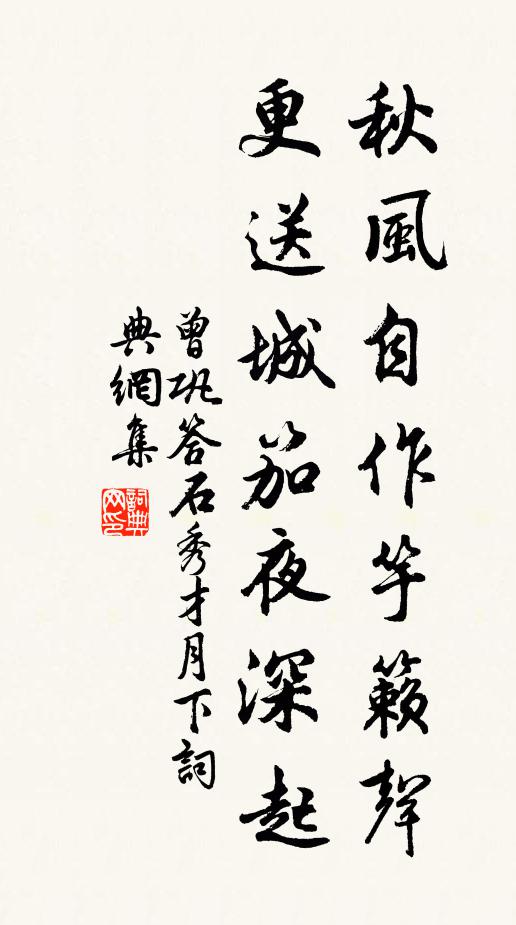 秋風自作竽籟聲
更送城笳夜深起
曾巩答石秀才月下詞
典網集
詞典網印